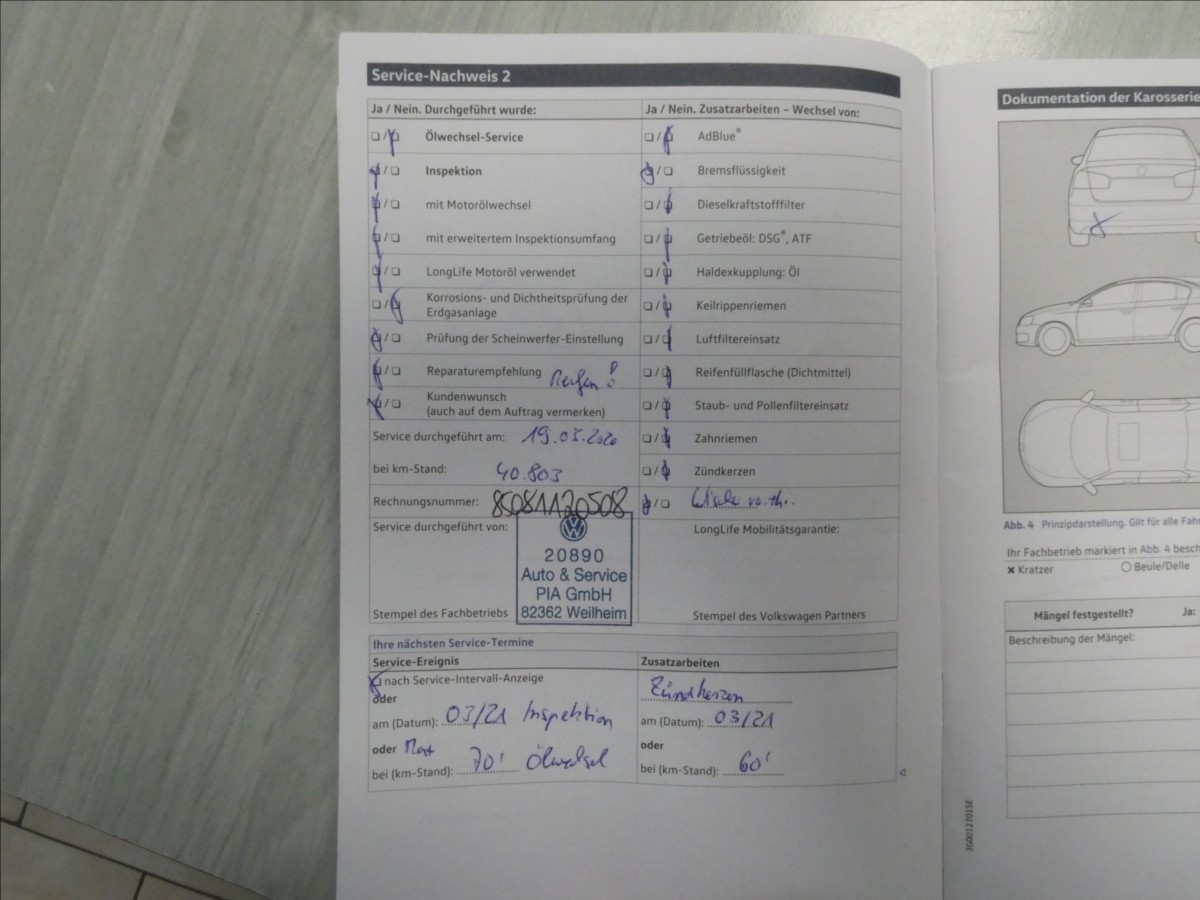 Service-Nachweis 2
Ja / Nein. Durchgeführt wurde:
Ölwechsel-Service
Inspektion
mit Motorölwechsel
mit erweitertem Inspektionsumfang
LongLife Motoröl verwendet
Korrosions- und Dichtheitsprüfung der
Erdgasanlage
Prüfung der Scheinwerfer-Einstellung
Reparaturempfehlung Reifen !
Kundenwunsch
(auch auf dem Auftrag vermerken)
Service durchgeführt am: 19.03.2020
bei km-Stand: 40.803
Rechnungsnummer: 85081120508
Service durchgeführt von:
VW
20890
Auto & Service
PIA GmbH
82362 Weilheim
Stempel des Fachbetriebs
Ja / Nein. Zusatzarbeiten – Wechsel von:
AdBlue®
Bremsflüssigkeit
Dieselkraftstofffilter
Getriebeöl: DSG®, ATF
Haldexkupplung: Öl
Keilrippenriemen
Luftfiltereinsatz
Reifenfüllflasche (Dichtmittel)
Staub- und Pollenfiltereinsatz
Zahnriemen
Zündkerzen
LongLife Mobilitätsgarantie:
Stempel des Volkswagen Partners
Ihre nächsten Service-Termine
Service-Ereignis
nach Service-Intervall-Anzeige
oder
am (Datum): 03/21 Inspektion
oder Max
bei (km-Stand): 70' Ölwechsel
Zusatzarbeiten
Zündkerzen
am (Datum): 03/21
oder
bei (km-Stand): 60'
Dokumentation der Karosserie
Abb. 4 Prinzipdarstellung. Gilt für alle Fah
Ihr Fachbetrieb markiert in Abb. 4 besch
Kratzer
Beule/Delle
Mängel festgestellt?
Ja:
Beschreibung der Mängel:
3G0012701SE